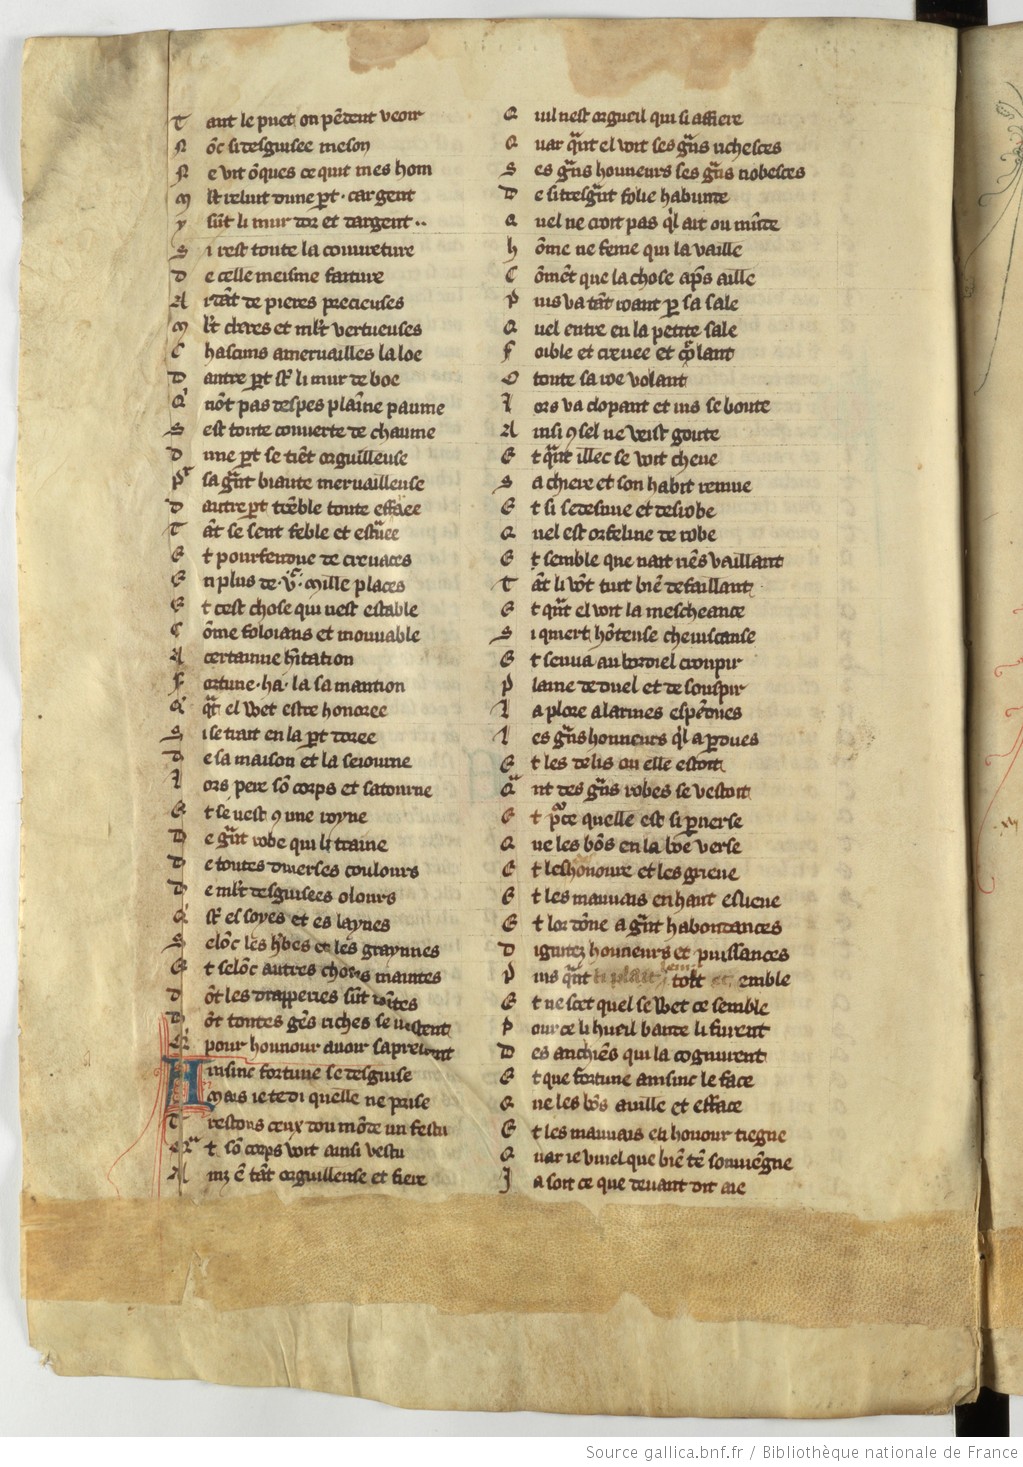 T ant le puet on pēdent veoir
N ōc si desguisee meson
N e vit ōques ce quit mes hom
M lt reluit dune ꝑt · car gent
Y sūt li mur dor et dargent ··
S i rest toute la couureture
D e celle meisme faiture
A rdāt de pieres precieuses
M lt cleres et mlt vertueuses
C hascuns a meruailles la loe
D autre ꝑt sūt li mur de boe
Q nōt pas despes plainne paume
S est toute couuerte de chaume
D une ꝑt se tiēt orguilleuse
P sa grāt biaute meruailleuse
D autre ꝑt trēble toute effraee
T āt se sent feble et esbahiee
E t pourfendue de creuaces
E n plus de · v · mille places
E t cest chose qui nest estable
C ōme foloians et mouuable
A certainne habitation
F ortune · ha · la sa mantion
Q qāt el wet estre honoree
S i se trait en la ꝑt doree
D e sa maison et la seiourne
L ors pere sō corps et satourne
E t se uest ꝯ une royne
D e grāt robe qui li traine
D e toutes diuerses coulours
D e mlt desguisees olours
Q sūt es soyes et es laynes
S elōc les hbes et les graynnes
E t selōc autres choses maintes
D ōt les drapperies sūt taintes
D ōt toutes gēs riches se uestent
Q pour honnour auoir saprestent
A insinc fortune se desguise
Mais ie te di quelle ne prise
T restous ceux dou mōde un festu
Q t sō corps voit ainsi vestu
A inz ē tāt orguilleuse et fiere
Q uil nest orgueil qui si affiere
Q uar qāt el voit ses grās richesces
S es grās honneurs ses grās noblesces
D e si tresgrāt folie habunde
Q uel ne croit pas qͥl ait ou mūde
H ōme ne feme qui la vaille
C ōmēt que la chose apͤs aille
P uis va tāt roant ꝑ sa sale
Q uel entre en la petite sale
F oible et creuee et crōlant
O toute sa roe volant
L ors va clopant et ius se boute
A insi ꝯ sel ne veist goute
E t qāt illec se voit cheue
S a chiere et son habit remue
E t si se desnue et desrobe
Q uel est orfeline de robe
E t semble que nait riēs vaillant
T āt li vōt tuit biē defaillant
E t qāt el voit la mescheance
S i quiert hōteuse cheuiscanse
E t senua au bordiel cropir
P laine de duel et de souspir
L a plore a larmes espēdues
L es grās honneurs qͥl a ꝑdues
E t les delis ou elle estoit
Q nt des grās robes se vestoit
E t pͦce quelle est si ꝑuerse
Q ue les bōs en la boe verse
E t les honoure et les grieue
E t les mauuais en haut eslieue
E t lor dōne a grāt habondances
D ignitez honneurs et puissances
P uis qāt li plait tolt et emble
E t ne scet quel se wet ce semble
P our ce li hueil bande li furent
D es anchiēs qui la cognurent
E t que fortune ainsinc le face
Q ue les bōs auille et efface
E t les mauuais en honour tiegne
Q uar ie vueil que biē tē souuiēgne
J a soit ce que deuant dit aie
Source gallica.bnf.fr / Bibliothèque nationale de France